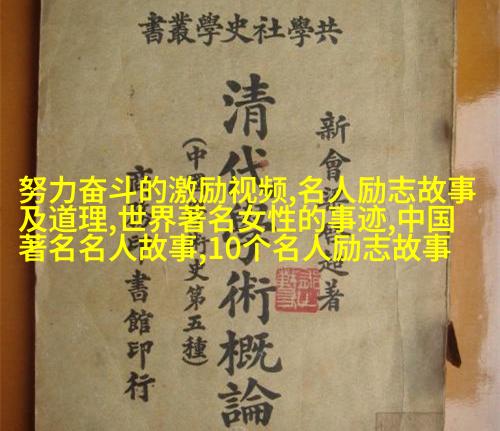 共學社史學叢書
新會 著
清代 術概論
(中 史第五種)
書館印行
努力奋斗的激励视频,名人励志故事
及道理,世界著名女性的事迹,中国
著名名人故事,10个名人励志故事